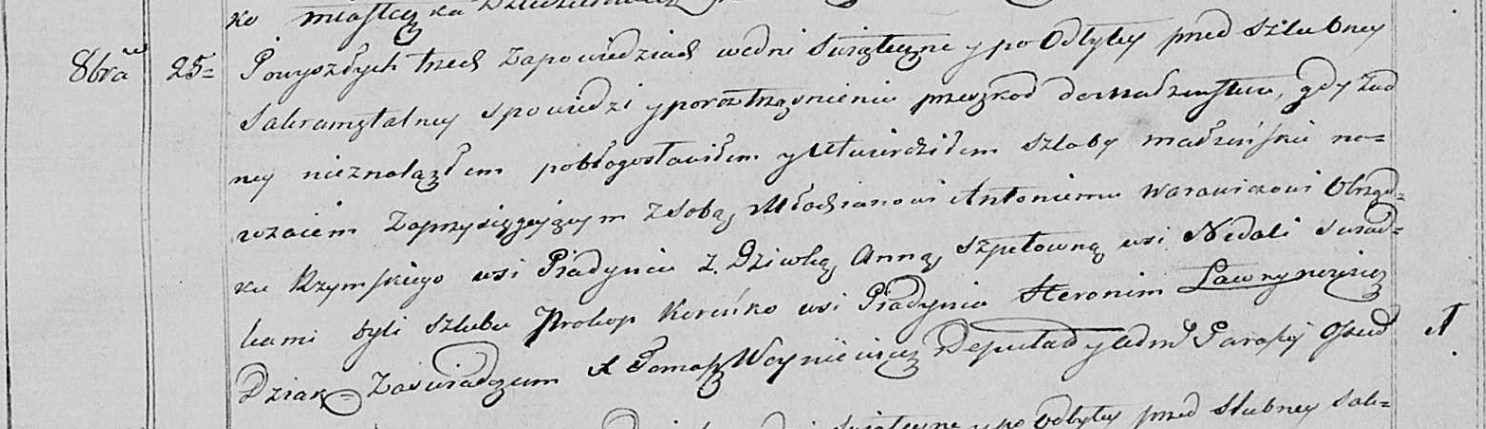 ko miasteczka
8bra 25= Powyszłych trzech Zapowiedziach wedni Swiąteczne y po Odbytey przed Szlubney
Sakramętalney spowiedzi y porostrząsnieniu przeszkod do Małżenstwa, gdy żad
ney nieznalazłem pobłogosławiłem y Utwierdziłem szluby małżeńskie na=
wzaiem Zaprzysięgaiącym z sobą, Młodzianowi Antoniemu Warawiczowi Obrząd=
ku Rzymskiego wsi Piadynia z Dziewką Anną Szpetowną wsi Nedali swiad=
kami byli szlubu Prokop Koreńko wsi Piadynia Heronim Ławrynowicz
Dziak= Zaswiadczam X Tomasz Woyniewicz Deputad y Adm Parafij Osud
swiąteczne y po Odbytey przed Slubney Sak=